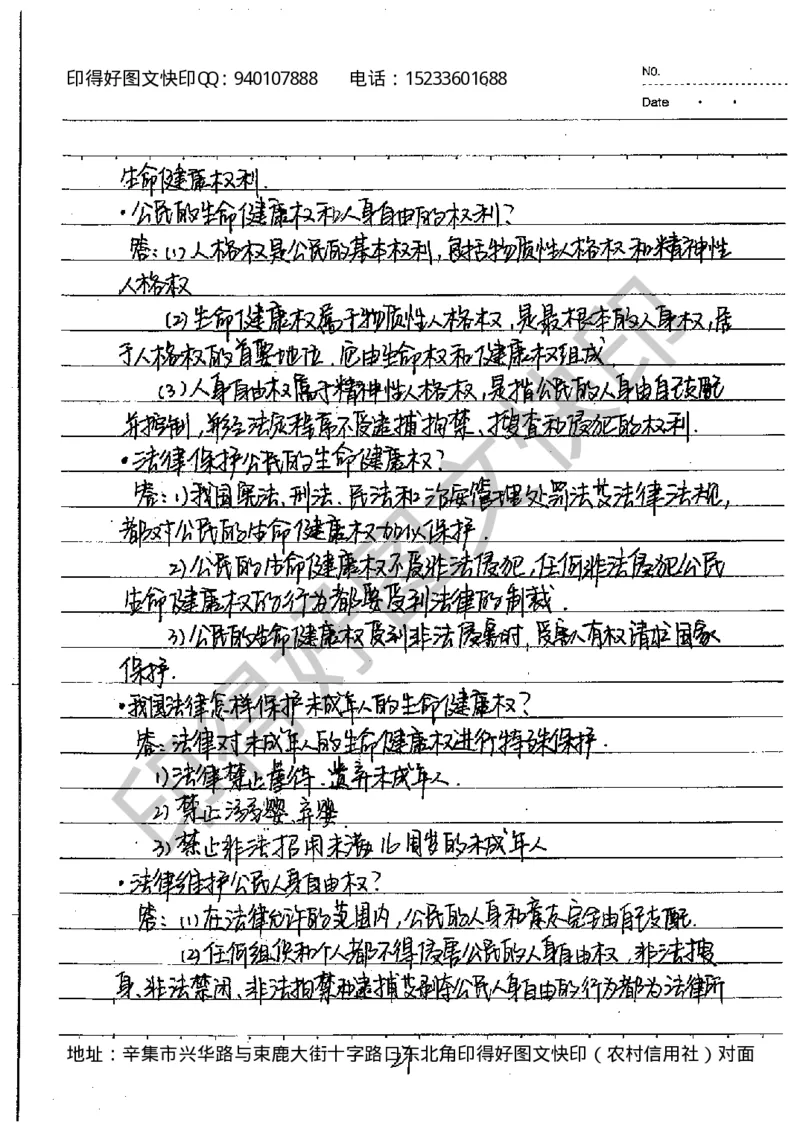 印得好图文快印QQ：940107888 电话：15233601688
No.
Date
生命健康权利.
·公民的生命健康权和人身自由的权利?
答：(1)人格权是公民的基本权利，包括物质性人格权和精神性
人格权
(2)生命健康权属于物质性人格权，是最根本的人身权，居
于人格权的首要地位.它由生命权和健康权组成.
(3)人身自由权属于精神性人格权，是指公民的人身由自己支配
并控制，非经法定程序不受逮捕拘禁、搜查和侵犯的权利.
·法律保护公民的生命健康权?
答：1)我国宪法、刑法、民法和治安管理处罚法及法律法规，
都对公民的生命健康权加以保护.
2)公民的生命健康权不受非法侵犯，任何非法侵犯公民
生命健康权的行为都要受到法律的制裁.
3)公民的生命健康权受到非法侵害时，受害人有权请求国家
保护.
·我国法律怎样保护未成年人的生命健康权?
答：法律对未成年人的生命健康权进行特殊保护.
1)法律禁止虐待、遗弃未成年人.
2)禁止溺婴、弃婴
3)禁止非法招用未满16周岁的未成年人
·法律维护公民人身自由权?
答：(1)在法律允许的范围内，公民的人身和意志完全由自己支配.
(2)任何组织和个人都不得侵害公民的人身自由权，非法搜
身、非法禁闭、非法拘禁和逮捕及剥夺公民人身自由的行为都为法律所
地址：辛集市兴华路与束鹿大街十字路口东北角印得好图文快印（农村信用社）对面
印得好图文快印